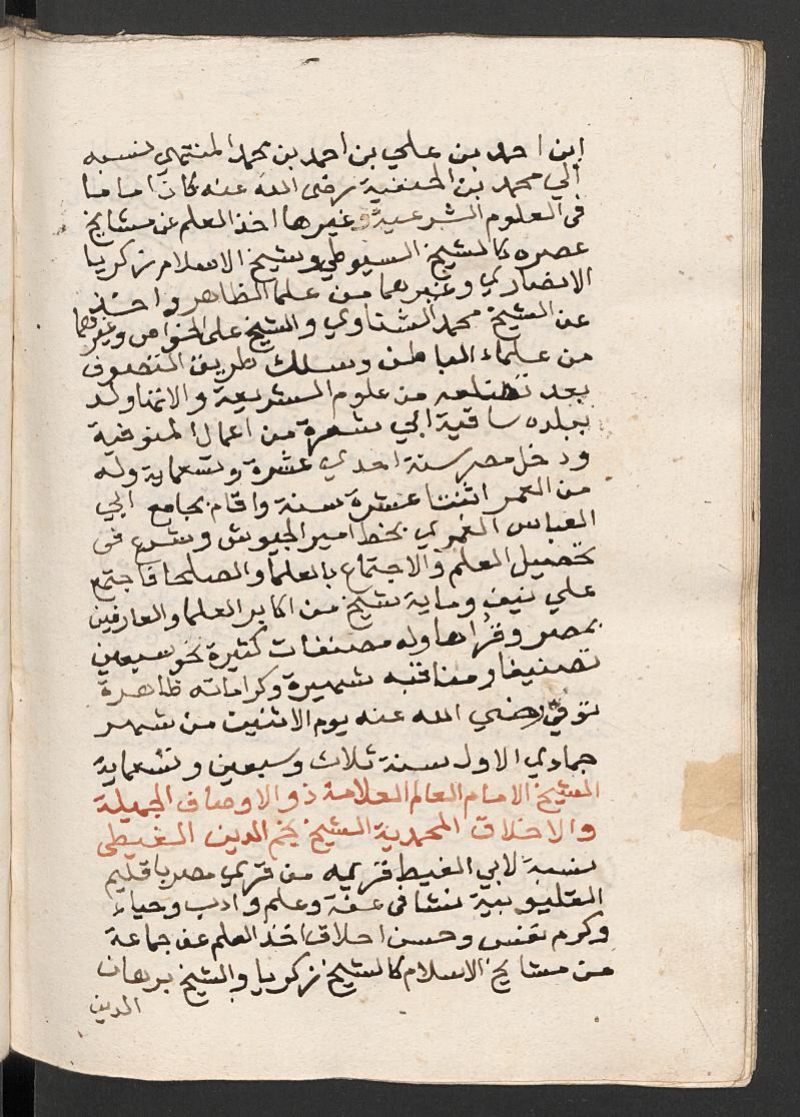 ابن احمد بن علي بن احمد بن محمد المنتهي نسبه
الي محمد بن الحنفية رضى الله عنه كان اماما
فى العلوم الشرعية وغيرها اخذ العلم عن مشايخ
عصره كالشيخ السيوطي وشيخ الاسلام زكريا
الانصاري وغيرهما من علما الظاهر واخذ
عن الشيخ محمد الشناوي والشيخ على الخواص وغيرهما
من علماء الباطن وسلك طريق التصوف
بعد تضلعه من علوم الشريعة والاتها ولد
ببلده ساقية ابي شعرة من اعمال المنوفية
ودخل مصر سنة احدي عشرة وتسعماية وله
من العمر اثنتا عشرة سنة واقام بجامع ابي
العباس الغمري بخط امير الجيوش وشرع فى
تحصيل العلم والاجتماع بالعلما والصلحا فاجتمع
علي نيف وماية شيخ من اكابر العلما والعارفين
بمصر وقراها وله مصنفات كثيرة نحو سبعين
تصنيفا ومناقبه شهيرة وكراماته ظاهرة
توفي رضي الله عنه يوم الاثنين من شهر
جمادي الاول سنة ثلاث وسبعين وتسعماية
الشيخ الامام العالم العلامة ذو الاوصاف الجميلة
والاخلاق المحمدية الشيخ نجم الدين الغيطى
نسبة لابي الغيط قريه من قري مصر باقليم
القليوبية نشا فى عفة وعلم وادب وحياء
وكرم نفس وحسن اخلاق اخذ العلم عن جماعة
من مشايخ الاسلام كالشيخ زكريا والشيخ برهان
الدين